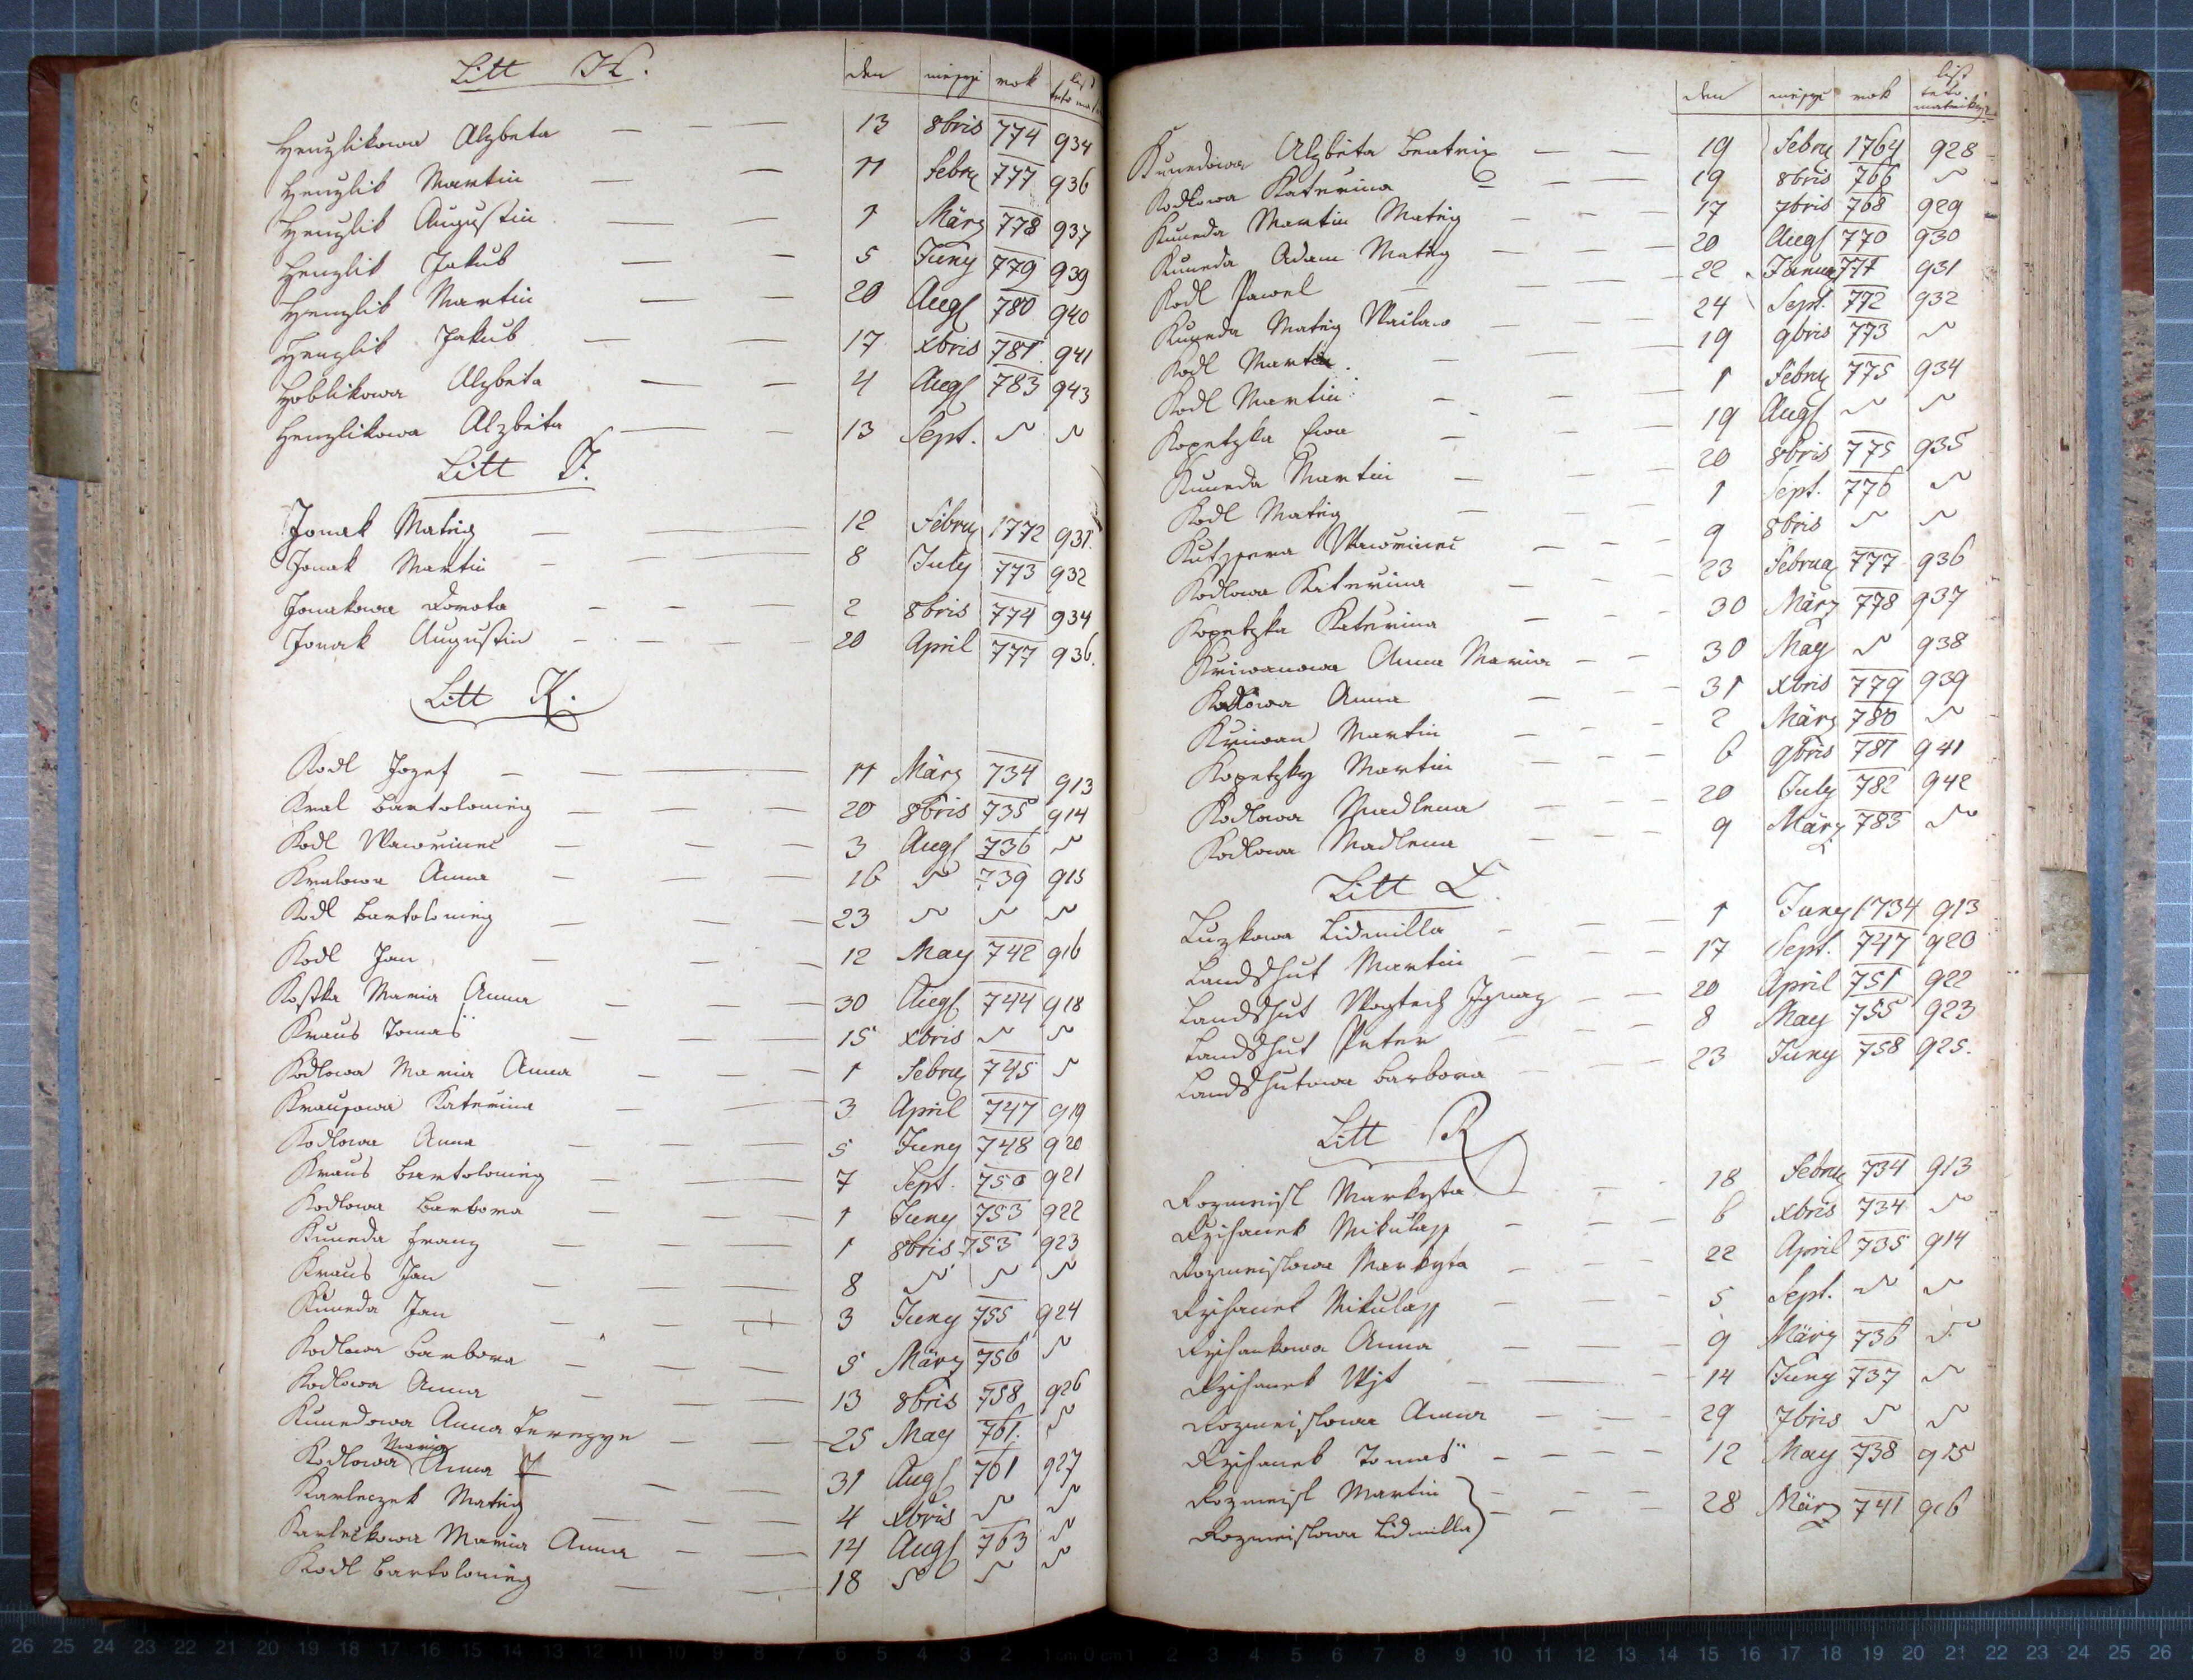 Litt H.
den měsýc rok list teto mat
Henzlikowa Alzbeta — — — 13 8bris 774 934
Henzlik Martin — — 11 Febru 777 936
Henzlik Augustin — — 1 März 778 937
Henzlik Jakub — — 5 Juny 779 939
Henzlik Martin — — 20 Aug 780 940
Henzlik Jakub — — 17 xbris 781 941
Hoblikowa Alzbeta — — 4 Aug 783 943
Henzlikowa Alzbeta — — 13 Sept. ~ ~
Litt J.
Jonak Matěg — — 12 Febru 1772 931.
Jonak Martin — — 8 July 773 932
Jonakowa Dorota — — — 2 8bris 774 934
Jonak Augustin — — — 20 April 777 936.
Litt K.
Kodl Jozef — — 11 März 734 913
Kral Bartolomieg — — — 20 8bris 735 914
Kodl Wawrinec — — — 3 Aug 736 ~
Kralowa Anna — — — 16 ~ 739 915
Kodl Bartolomieg — — — 23 ~ ~ ~
Kodl Jan — — — 12 May 742 916
Kostka Maria Anna — — — 30 Aug 744 918
Kraus Tomaš — — — 15 xbris ~ ~
Kodlowa Maria Anna — — — 1 Febru 745 ~
Krausowa Katerina — — — 3 April 747 919
Kodlowa Anna — — — 5 Juny 748 920
Kraus Bartolomieg — — — 7 Sept. 750 921
Kodlowa Barbora — — — 1 Juny 753 922
Kuneda Franz — — — 1 8bris 753 923
Kraus Jan — — — 8 ~ ~ ~
Kuneda Jan — — — 3 Juny 755 924
Kodlowa Barbora — — — 5 März 756 ~
Kodlowa Anna — — — 13 8bris 758 926
Kunedowa Anna Terezye — — 25 May 761. ~
Kodlowa Maria Anna — — 31 Aug 761 927
Karleczek Matěg — — — 4 xbris ~ ~
Karlečkowa Maria Anna — — 14 Aug 763 ~
Kodl Bartolomieg — — 18 ~ ~ ~
den měsýc rok list teto matriky
Kunedowa Alzbeta Beatrix — — 19 Febru 1764 928
Kodlowa Katerina — — — 19 8bris 766 ~
Kuneda Martin Matěg — — — 17 7bris 768 929
Kuneda Adam Matěg — — — 20 Aug 770 930
Kodl Pawel — — — 22 771 931
Kuneda Matěg Waclaw — — — 24 Sept. 772 932
Kodl Martin. — — — 19 9bris 773 ~
Kodl Martin — — — 1 Febru 775 934
Kopetzka Ewa — — — 19 Aug ~ ~
Kuneda Martin — — — 20 8bris 775 935
Kodl Matěg — — — 1 Sept. 776 ~
Wawrinec — — — 9 8bris ~ ~
Kodlowa Katerina — — — 23 Februa 777 936
Kopetzka Katerina — — — 30 März 778 937
Kriwanowa Anna Maria — — 30 May ~ 938
Kodlowa Anna — — — 31 xbris 779 939
Kriwan Martin — — — 2 März 780 ~
Kopetzky Martin — — — 6 9bris 781 941
Kodlowa Madlena — — — 20 July 782 942
Kodlowa Madlena — — — 9 März 783 ~
Litt L.
Luzkowa Lidmilla — — — 1 Juny 1734 913
Landshut Martin — — — 17 Sept. 747 920
Landshut Wogtech Ignaz — — 20 April 751 922
Landshut Peter — — — 8 May 755 923
Landshutowa Barbora — — — 23 Juny 758 925.
Litt R
Rozmeisl Markyta — — — 18 Febru 734 913
Rzihanek Mikulass — — — 6 xbris 734 ~
Rozmeislowa Markyta — — — 22 April 735 914
Rzihanek Mikulass — — — 5 Sept. ~ ~
Rzihankowa Anna — — — 9 März 736 ~
Rzihanek Wjt — — — 14 Juny 737 ~
Rozmeislowa Anna — — — 29 7bris ~ ~
Rzihanek Tomaš — — — 12 May 738 915
Rozmeisl Martin — — — 28 März 741 916
Rozmeislowa Lidmilla
26 25 24 23 22 21 20 19 18 17 16 15 14 13 12 11 10 9 8 7 6 5 4 3 2 1 cm 0 cm 1 2 3 4 5 6 7 8 9 10 11 12 13 14 15 16 17 18 19 20 21 22 23 24 25 26